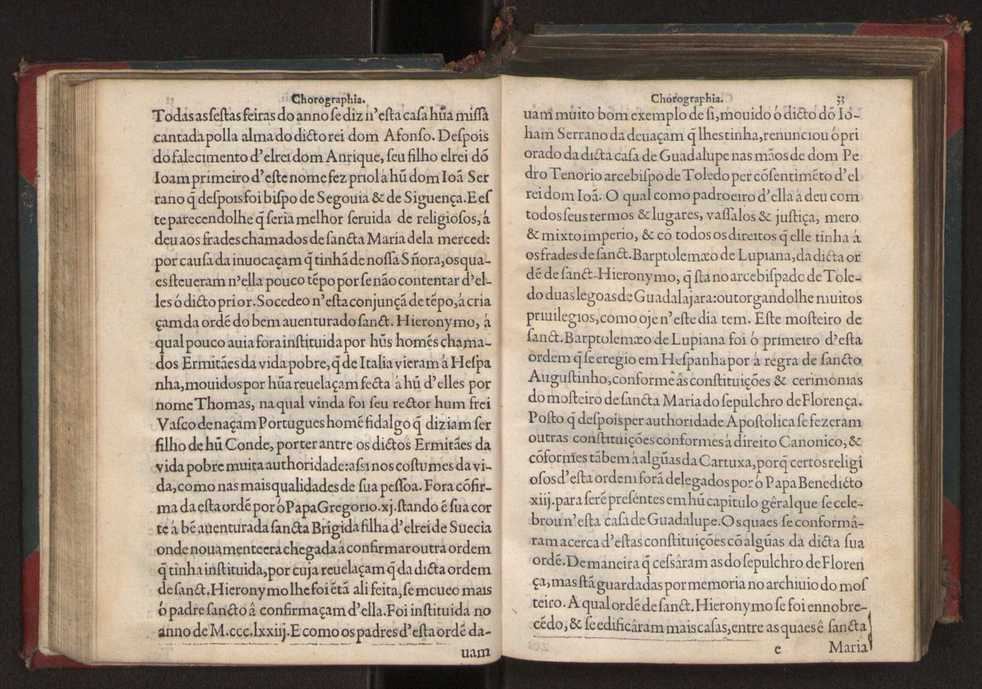 Chorographia.
Todas as sestas feiras do anno se diz n'esta casa hũa missa
cantada polla alma do dicto rei dom Afonso. Despois
do falecimento d'elrei dom Anrique, seu filho elrei dõ
Ioam primeiro d'este nome fez priol a hũ dom Ioã Ser
rano q̃ despois foi bispo de Segouia & de Siguença. E es
te parecendolhe q̃ seria melhor seruida de religiosos, á
deu aos frades chamados de sancta Maria dela merced:
por causa da inuocaçam q̃ tinhã de nossa Sñora, os qua-
es steueram n'ella pouco tẽpo por se não contentar d'el-
les ó dicto prior. Socedeo n'esta conjunçã de tẽpo, á cria
çam da ordẽ do bem auenturado sanct. Hieronymo, á
qual pouco auia fora instituida por hũs homẽs chama-
dos Ermitães da vida pobre, q̃ de Italia vieram á Hespa
nha, mouidos por hũa reuelaçam fecta á hũ d'elles por
nome Thomas, na qual vinda foi seu rector hum frei
Vasco de naçam Portugues homẽ fidalgo q̃ diziam ser
filho de hũ Conde, por ter antre os dictos Ermitães da
vida pobre muita authoridade: assi nos costumes da vi-
da, como nas mais qualidades de sua pessoa. Fora cõfir-
mada esta ordẽ por ò Papa Gregorio. xj. stando ẽ sua cor
te á bẽ auenturada sancta Brigida filha d'elrei de Suecia
onde nouamente era chegada a confirmar outra ordem
q̃ tinha instituida, por cuja reuelaçam q̃ da dicta ordem
de sanct. Hieronymo lhe foi ẽtã ali feita, se moueo mais
ò padre sancto â confirmaçam d'ella. Foi instituida no
anno de M. ccc. lxxiij. E como os padres d'esta ordẽ da-
uam
Chorographia. 33
uam muito bom exemplo de si, mouido ó dicto dõ Io-
ham Serrano da deuaçam q̃ lhes tinha, renunciou ó pri
orado da dicta casa de Guadalupe nas mãos de dom Pe
dro Tenorio arcebispo de Toledo per cõsentimẽto d'el
rei dom Ioã. O qual como padroeiro d'ella á deu com
todos seus termos & lugares, vassalos & justiça, mero
& mixto imperio, & cõ todos os direitos q̃ elle tinha á
os frades de sanct. Barptolemæo de Lupiana, da dicta or
dẽ de sanct. Hieronymo, q̃ sta no arcebispado de Tole-
do duas legoas de Guadalajara: outorgandolhe muitos
priuilegios, como oje n'este dia tem. Este mosteiro de
sanct. Barptolemæo de Lupiana foi ó primeiro d'esta
ordem q̃ se eregio em Hespanha por á regra de sancto
Augustinho, conforme âs constituições & cerimonias
do mosteiro de sancta Maria do sepulchro de Florença.
Posto q̃ despois per authoridade Apostolica se fezeram
outras constituições conformes á direito Canonico, &
cõformes tãbem a algũas da Cartuxa, porq̃ certos religi
osos d'esta ordem forã delegados por ò Papa Benedicto
xiij. para serẽ presentes em hũ capitulo gêral que se cele-
brou n'esta casa de Guadalupe. Os quaes se conformâ-
ram acerca d'estas constituições cõ algũas da dicta sua
ordẽ. De maneira q̃ cessâram as do sepulchro de Floren
ça, mas stã guardadas por memoria no archiuio do mos
teiro. A qual ordẽ de sanct. Hieronymo se foi ennobre-
cẽdo, & se edificâram mais casas, entre as quaes ê sancta
e Maria